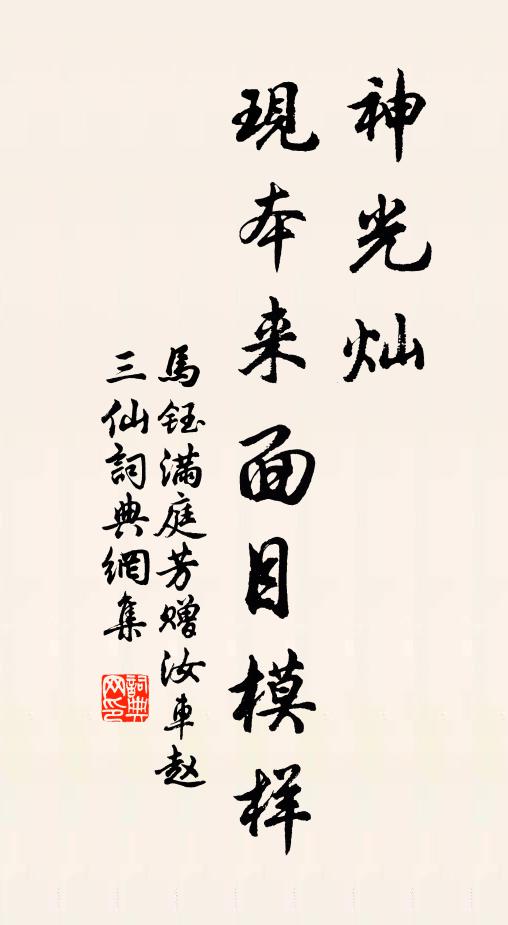 神光灿
現本来面目模样
馬鈺满庭芳赠汝車赵
三仙詞典網集
詞典网印